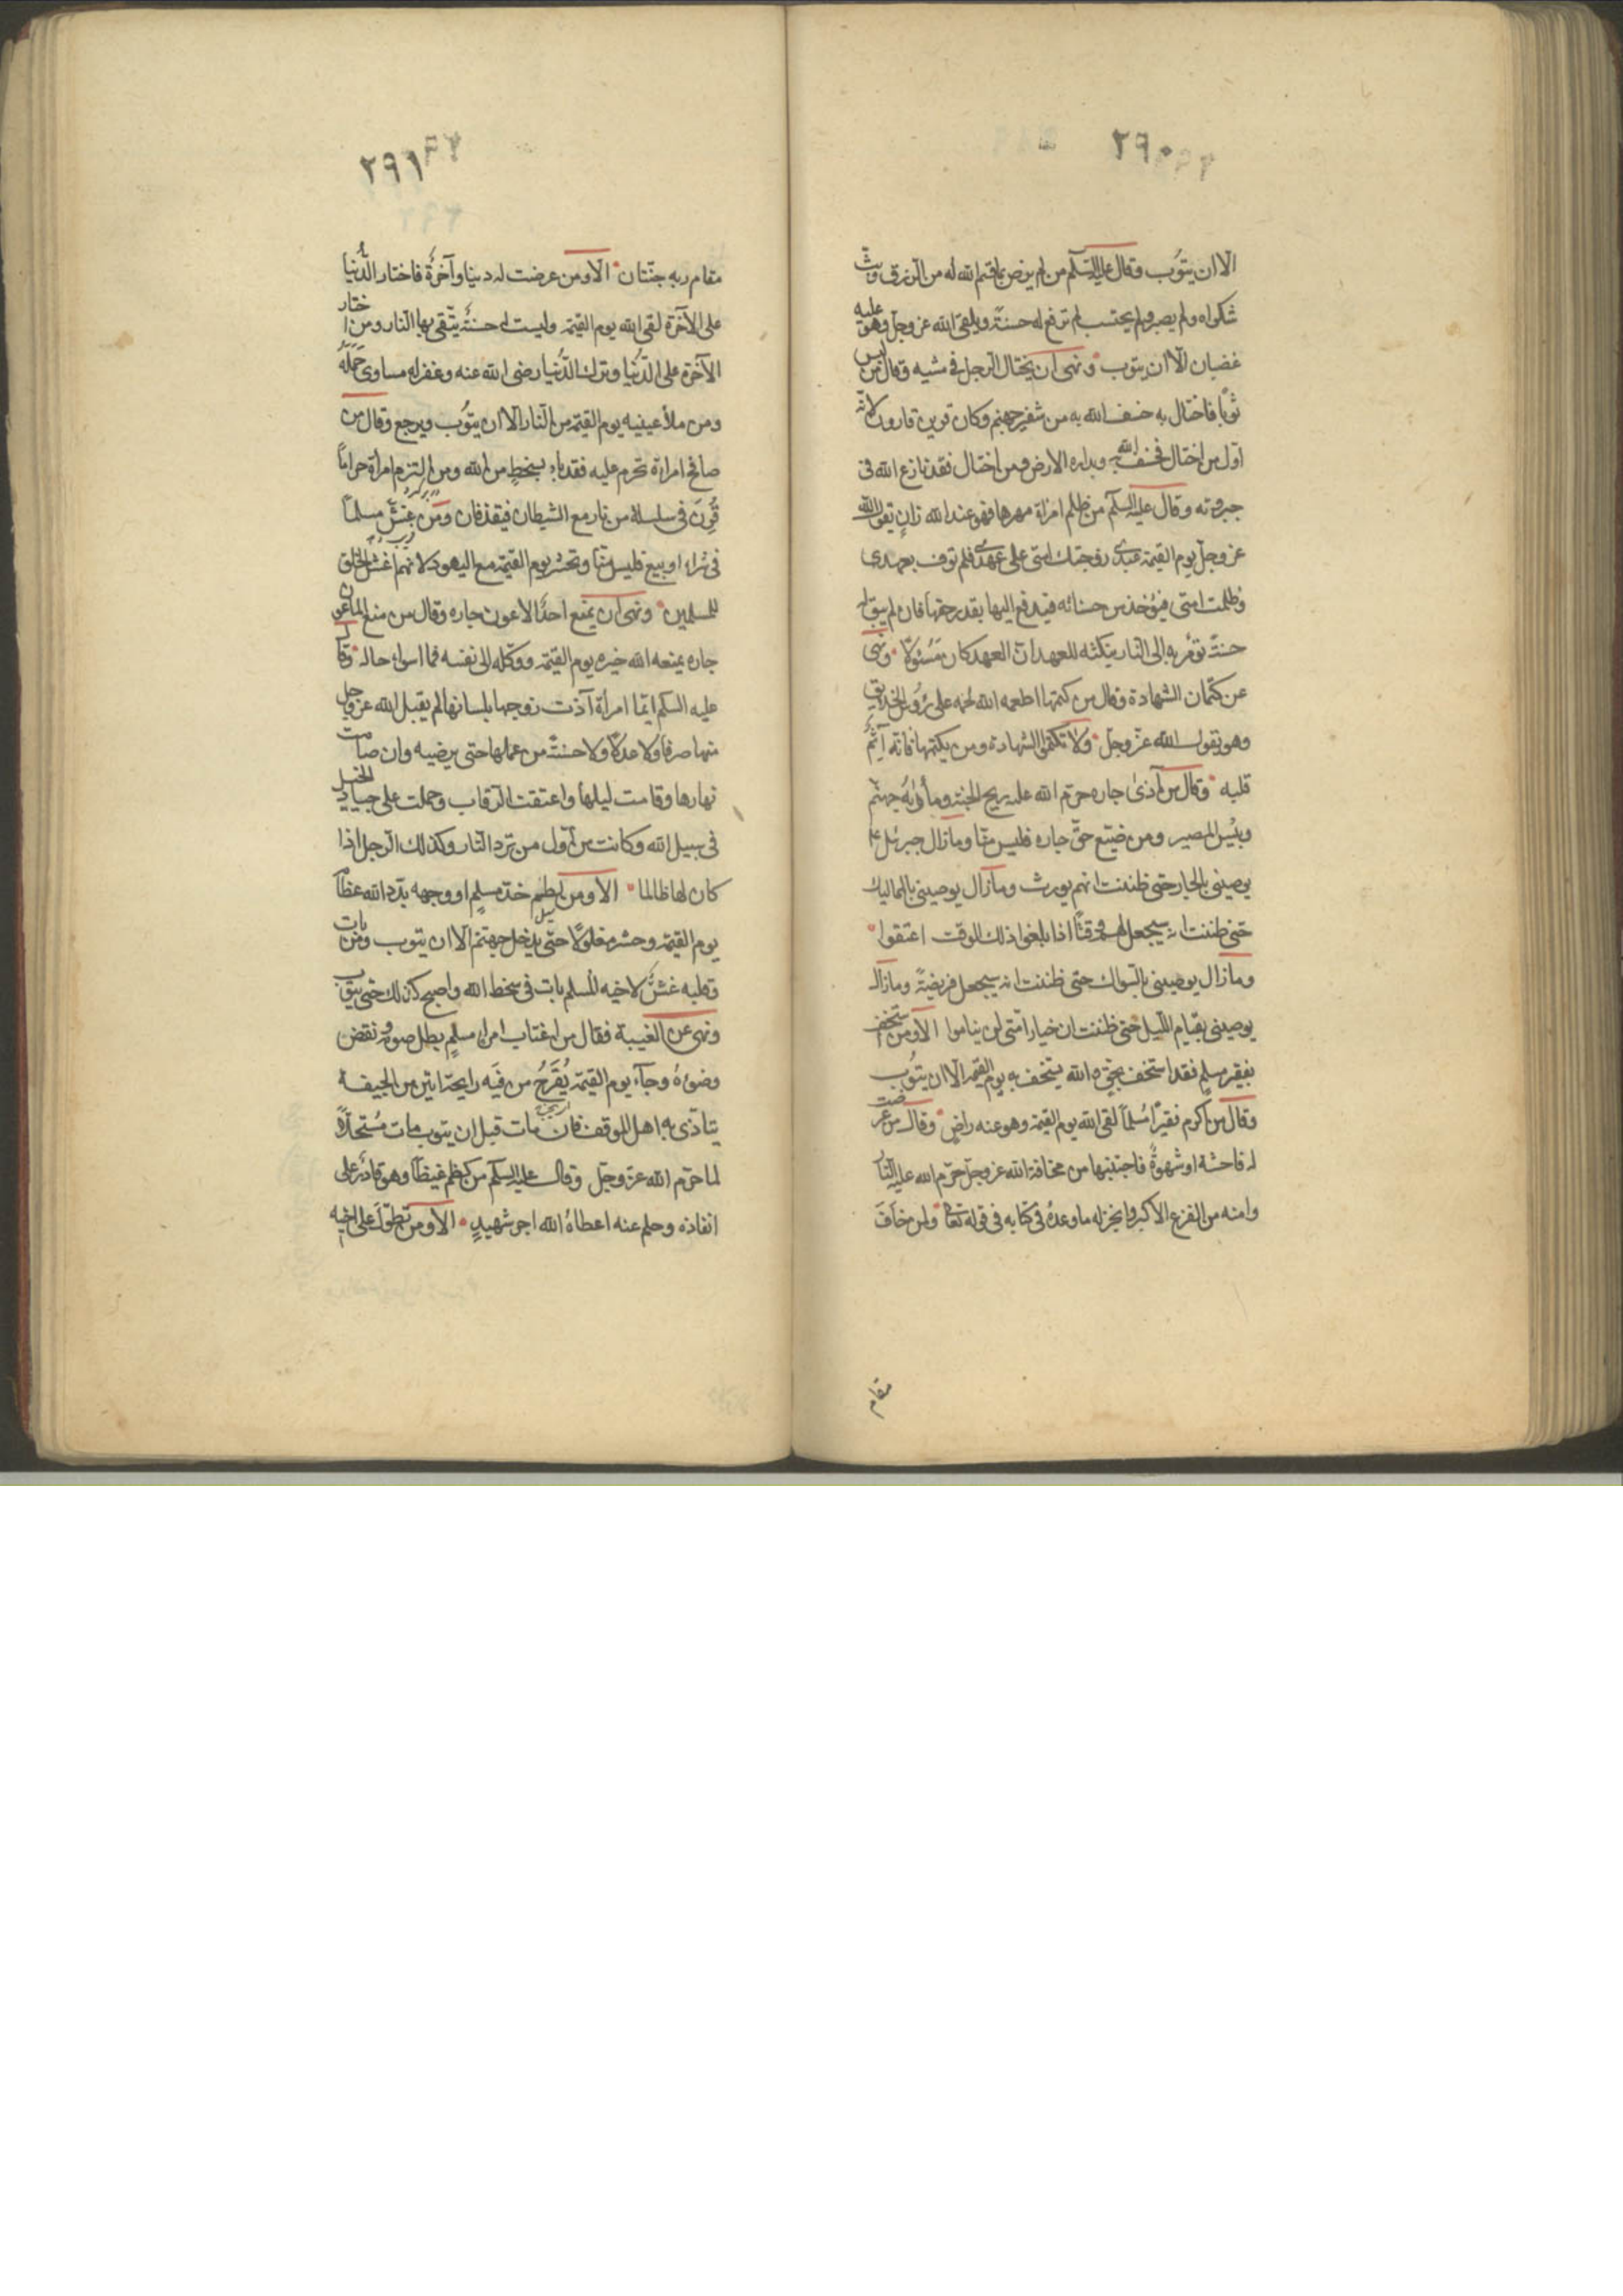 ٢٩٠
الا ان يتوب وقال عليه السلم من لم يرض بما قسم الله له من الرزق وبث
شكواه ولم يصبر ولم يحتسب لم ترفع له حسنة ويلقى الله عز وجل وهو عليه
غضبان الا ان يتوب ونهى ان يختال الرجل فى مشيه وقال من لبس
ثوبا فاختال به خسف الله به من شفير جهنم وكان قرين قارون لانه
اول من اختال فخسف الله به وبداره الارض ومن اختال فقد نازع الله فى
جبروته وقال عليه السلم من ظلم امراة مهرها فهو عند الله زان يقول الله
عز وجل يوم القيمة عبدى زوجتك امتى على عهدى فلم توف بعهدى
وظلمت امتى فيؤخذ من حسناته فيدفع اليها بقدر حقها فان لم يبق له
حسنة تؤمر به الى النار بنكثه للعهد ان العهد كان مسئولا ونهى
عن كتمان الشهادة وقال من كتمها اطعمه الله لحمه على رؤس الخلايق
وهو يقول الله عز وجل ولا تكتموا الشهادة ومن يكتمها فانه آثم
قلبه وقال من آذى جاره حرم الله عليه ريح الجنة ومأواه جهنم
وبئس المصير ومن ضيع حق جاره فليس منا وما زال جبرئل ع
يوصينى بالجار حتى ظننت انهم يورث وما زال يوصينى بالمماليك
حتى ظننت انه سيجعل لهم وقتا اذا بلغوا ذلك الوقت اعتقوا
وما زال يوصينى بالسواك حتى ظننت انه سيجعل فريضة وما زال
يوصينى بقيام الليل حتى ظننت ان خيار امتى لن يناموا الا ومن استخف
بفقير مسلم فقد استخف بحق الله يستخف به يوم القيمة الا ان يتوب
وقال من اكرم فقيرا مسلما لقى الله يوم القيمة وهو عنه راض وقال من عرضت
له فاحشة او شهوة فاجتنبها من مخافة الله عز وجل حرم الله عليه النار
وامنه من الفزع الاكبر وانجز له ما وعده فى كتابه فى قوله تعالى ولمن خاف
مقام
٢٩١
مقام ربه جنتان الا ومن عرضت له دينا وآخرة فاختار الدنيا
على الآخرة لقى الله يوم القيمة وليست له حسنة يتقى بها النار ومن اختار
الآخرة على الدنيا وترك الدنيا رضى الله عنه وغفر له مساوى عمله
ومن ملأ عينيه يوم القيمة من النار الا ان يتوب ويرجع وقال من
صافح امراة تحرم عليه فقد باء بسخط من الله ومن التزم امراة حراما
قرن فى سلسلة من نار مع الشيطان فيقذفان ومن غش مسلما
فى شراء او بيع فليس منا ويحشر يوم القيمة مع اليهود لانهم اغش الخلق
للمسلمين ونهى ان يمنع احدا لاعون جاره وقال من منع الماعون
جاره يمنعه الله خيره يوم القيمة ووكله الى نفسه فما اسواء حاله وقال
عليه السلم ايما امرأة آذت زوجها بلسانها لم يقبل الله عز وجل
منها صرفا ولا عدلا ولا حسنة من عملها حتى يرضيه وان صامت
نهارها وقامت ليلها واعتقت الرقاب وحملت على جياد الخيل
فى سبيل الله وكانت من اول من ترد النار وكذلك الرجل اذا
كان لها ظالما الا ومن لطم خد مسلم او وجهه بدد الله عظامه
يوم القيمة وحشر مغلولا حتى يدخل جهنم الا ان يتوب ومن بات
وقلبه غش لاخيه المسلم بات فى سخط الله واصبح كذلك حتى يتوب
ونهى عن الغيبة فقال من اغتاب امراء مسلم بطل صومه ونقض
وضوءه وجاء يوم القيمة يقرح من فيه رايحة انتن من الجيفة
يتاذى به اهل الموقف فان مات قبل ان يتوب مات مستحلا
لما حرم الله عز وجل وقال عليه السلم من كظم غيظا وهو قادر على
انفاذه وحلم عنه اعطاه الله اجر شهيد الا ومن تطول على اخيه